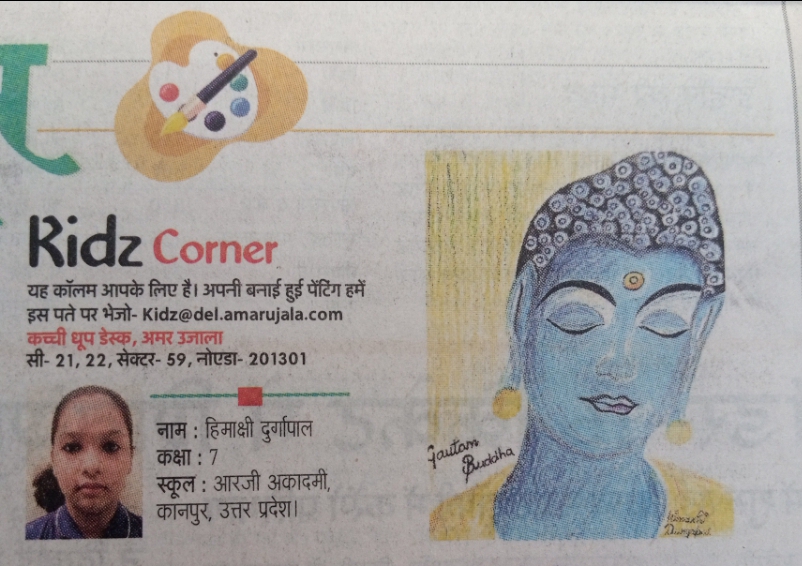 Kidz Corner
यह कॉलम आपके लिए है। अपनी बनाई हुई पेंटिंग हमें
इस पते पर भेजो- Kidz@del.amarujala.com
कच्ची धूप डेस्क, अमर उजाला
सी- 21, 22, सेक्टर- 59, नोएडा- 201301
नाम : हिमाक्षी दुर्गापाल
कक्षा : 7
स्कूल : आरजी अकादमी,
कानपुर, उत्तर प्रदेश।
Gautam
Buddha